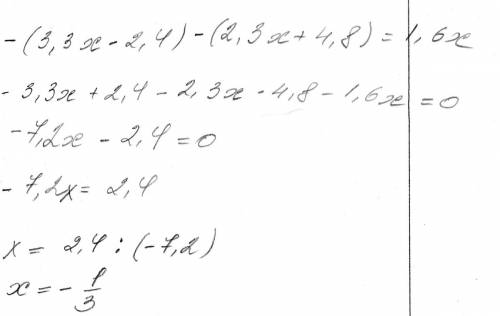 -(3,3x-2,4)-(2,3x+4,8)=1,6x
-3,3x+2,4-2,3x-4,8-1,6x=0
-7,2x-2,4=0
-7,2x=2,4
x=2,4:(-7,2)
x=-1/3